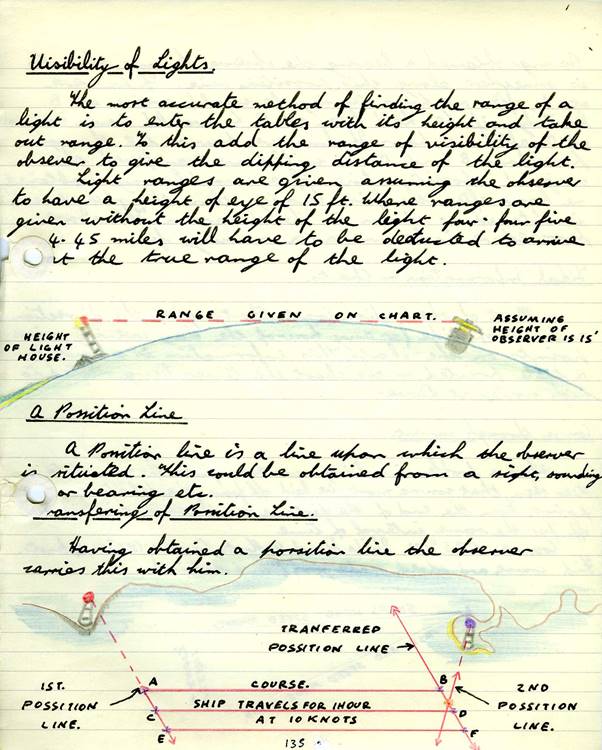 Visibility of Lights.
The most accurate method of finding the range of a
light is to enter the tables with its height and take
out range. To this add the range of visibility of the
observer to give the dipping distance of the light.
Light ranges are given assuming the observer
to have a height of eye of 15 ft. Where ranges are
given without the height of the light four · four five
4·45 miles will have to be deducted to arrive
at the true range of the light.
RANGE GIVEN ON CHART.
HEIGHT
OF LIGHT
HOUSE.
ASSUMING
HEIGHT OF
OBSERVER IS 15'
A Possition Line
A Possition line is a line upon which the observer
is situated. This could be obtained from a sight, sounding
or bearing etc.
Transfering of Possition Line.
Having obtained a possition line the observer
carries this with him.
TRANFERRED
POSSITION LINE
1ST.
POSSITION
LINE.
A
COURSE.
B
C
SHIP TRAVELS FOR 1 HOUR
AT 10 KNOTS
D
E
F
2ND
POSSITION
LINE.
135